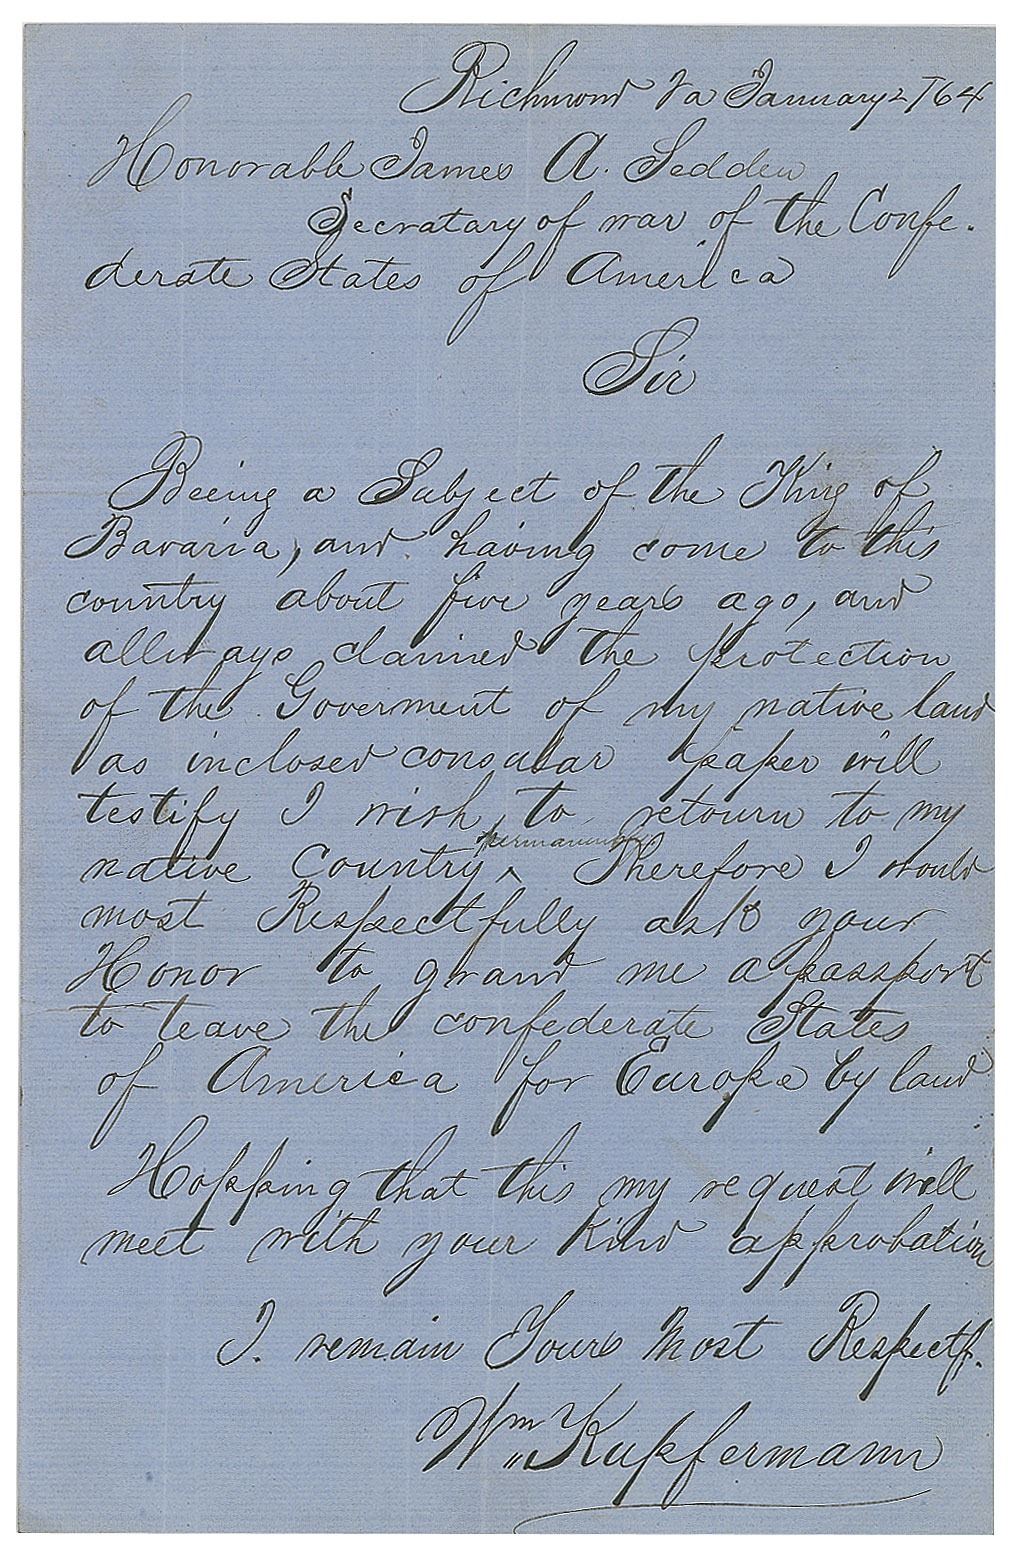 Richmond Va January 2/64
Honorable James A. Sedden
Secratary of war of the Confe.
derate States of America
Sir
Beeing a Subject of the King of
Bavaria, and having come to this
country about five years ago, and
allways claimed the protection
of the Goverment of my native land
as inclosed consular paper will
testify I wish to retourn to my
permanently
native Country ^ Therefore I would
most Respectfully ask your
Honor to grand me a passport
to leave the confederate States
of America for Europe by land
Hopping that this my request will
meet with your Kind approbation
I. remain Yours Most Respectf.
Wm Kupfermann